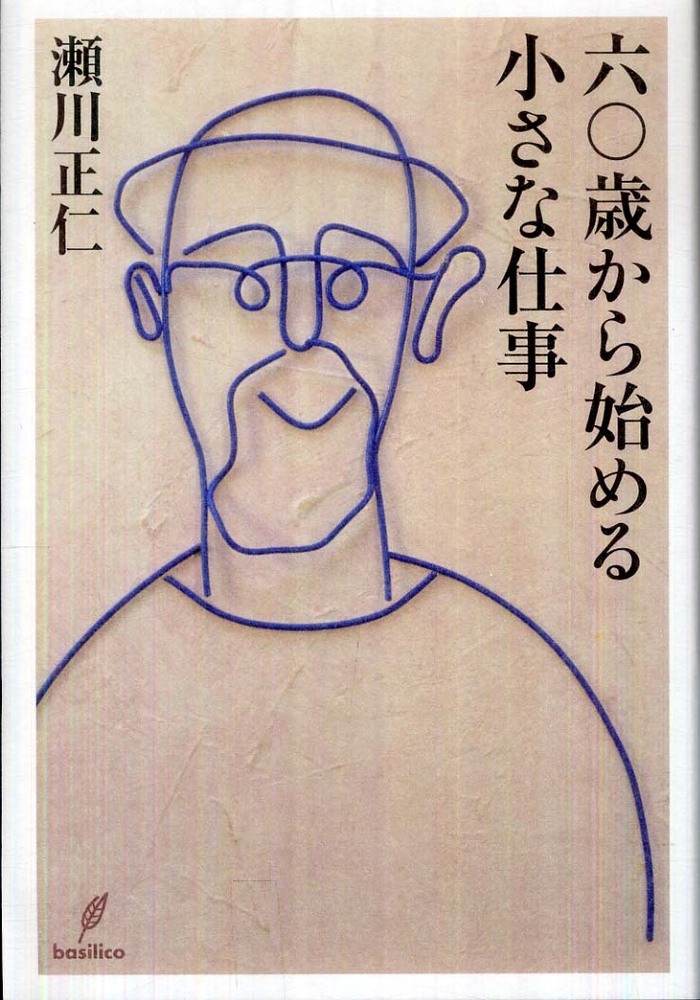 六〇歳から始める
小さな仕事
瀬川正仁
basilico